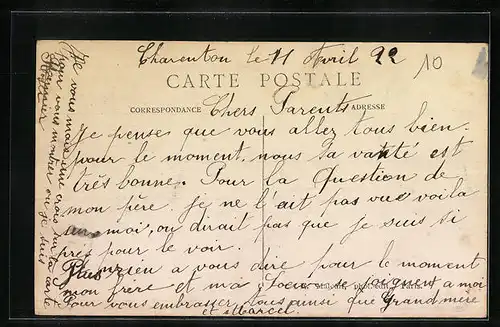 Charenton le 11 Avril 22
10
CARTE POSTALE
CORRESPONDANCE Chers Parents ADRESSE
Je pense que vous allez tous bien
pour le moment. nous sa va santé est
très bonne. Pour la Question de
mon père je ne l'ait pas vue voila
un moi, ou dirait pas que je suis si
près pour le voir.
Plus rien a vous dire pour le moment
mon frère et ma Soeur se joignent a moi
Pour vous embrasser tous ainsi que Grand mère
et Marcel.
Je vous mais une croix sur la carte
pour vous montrer ou je suis